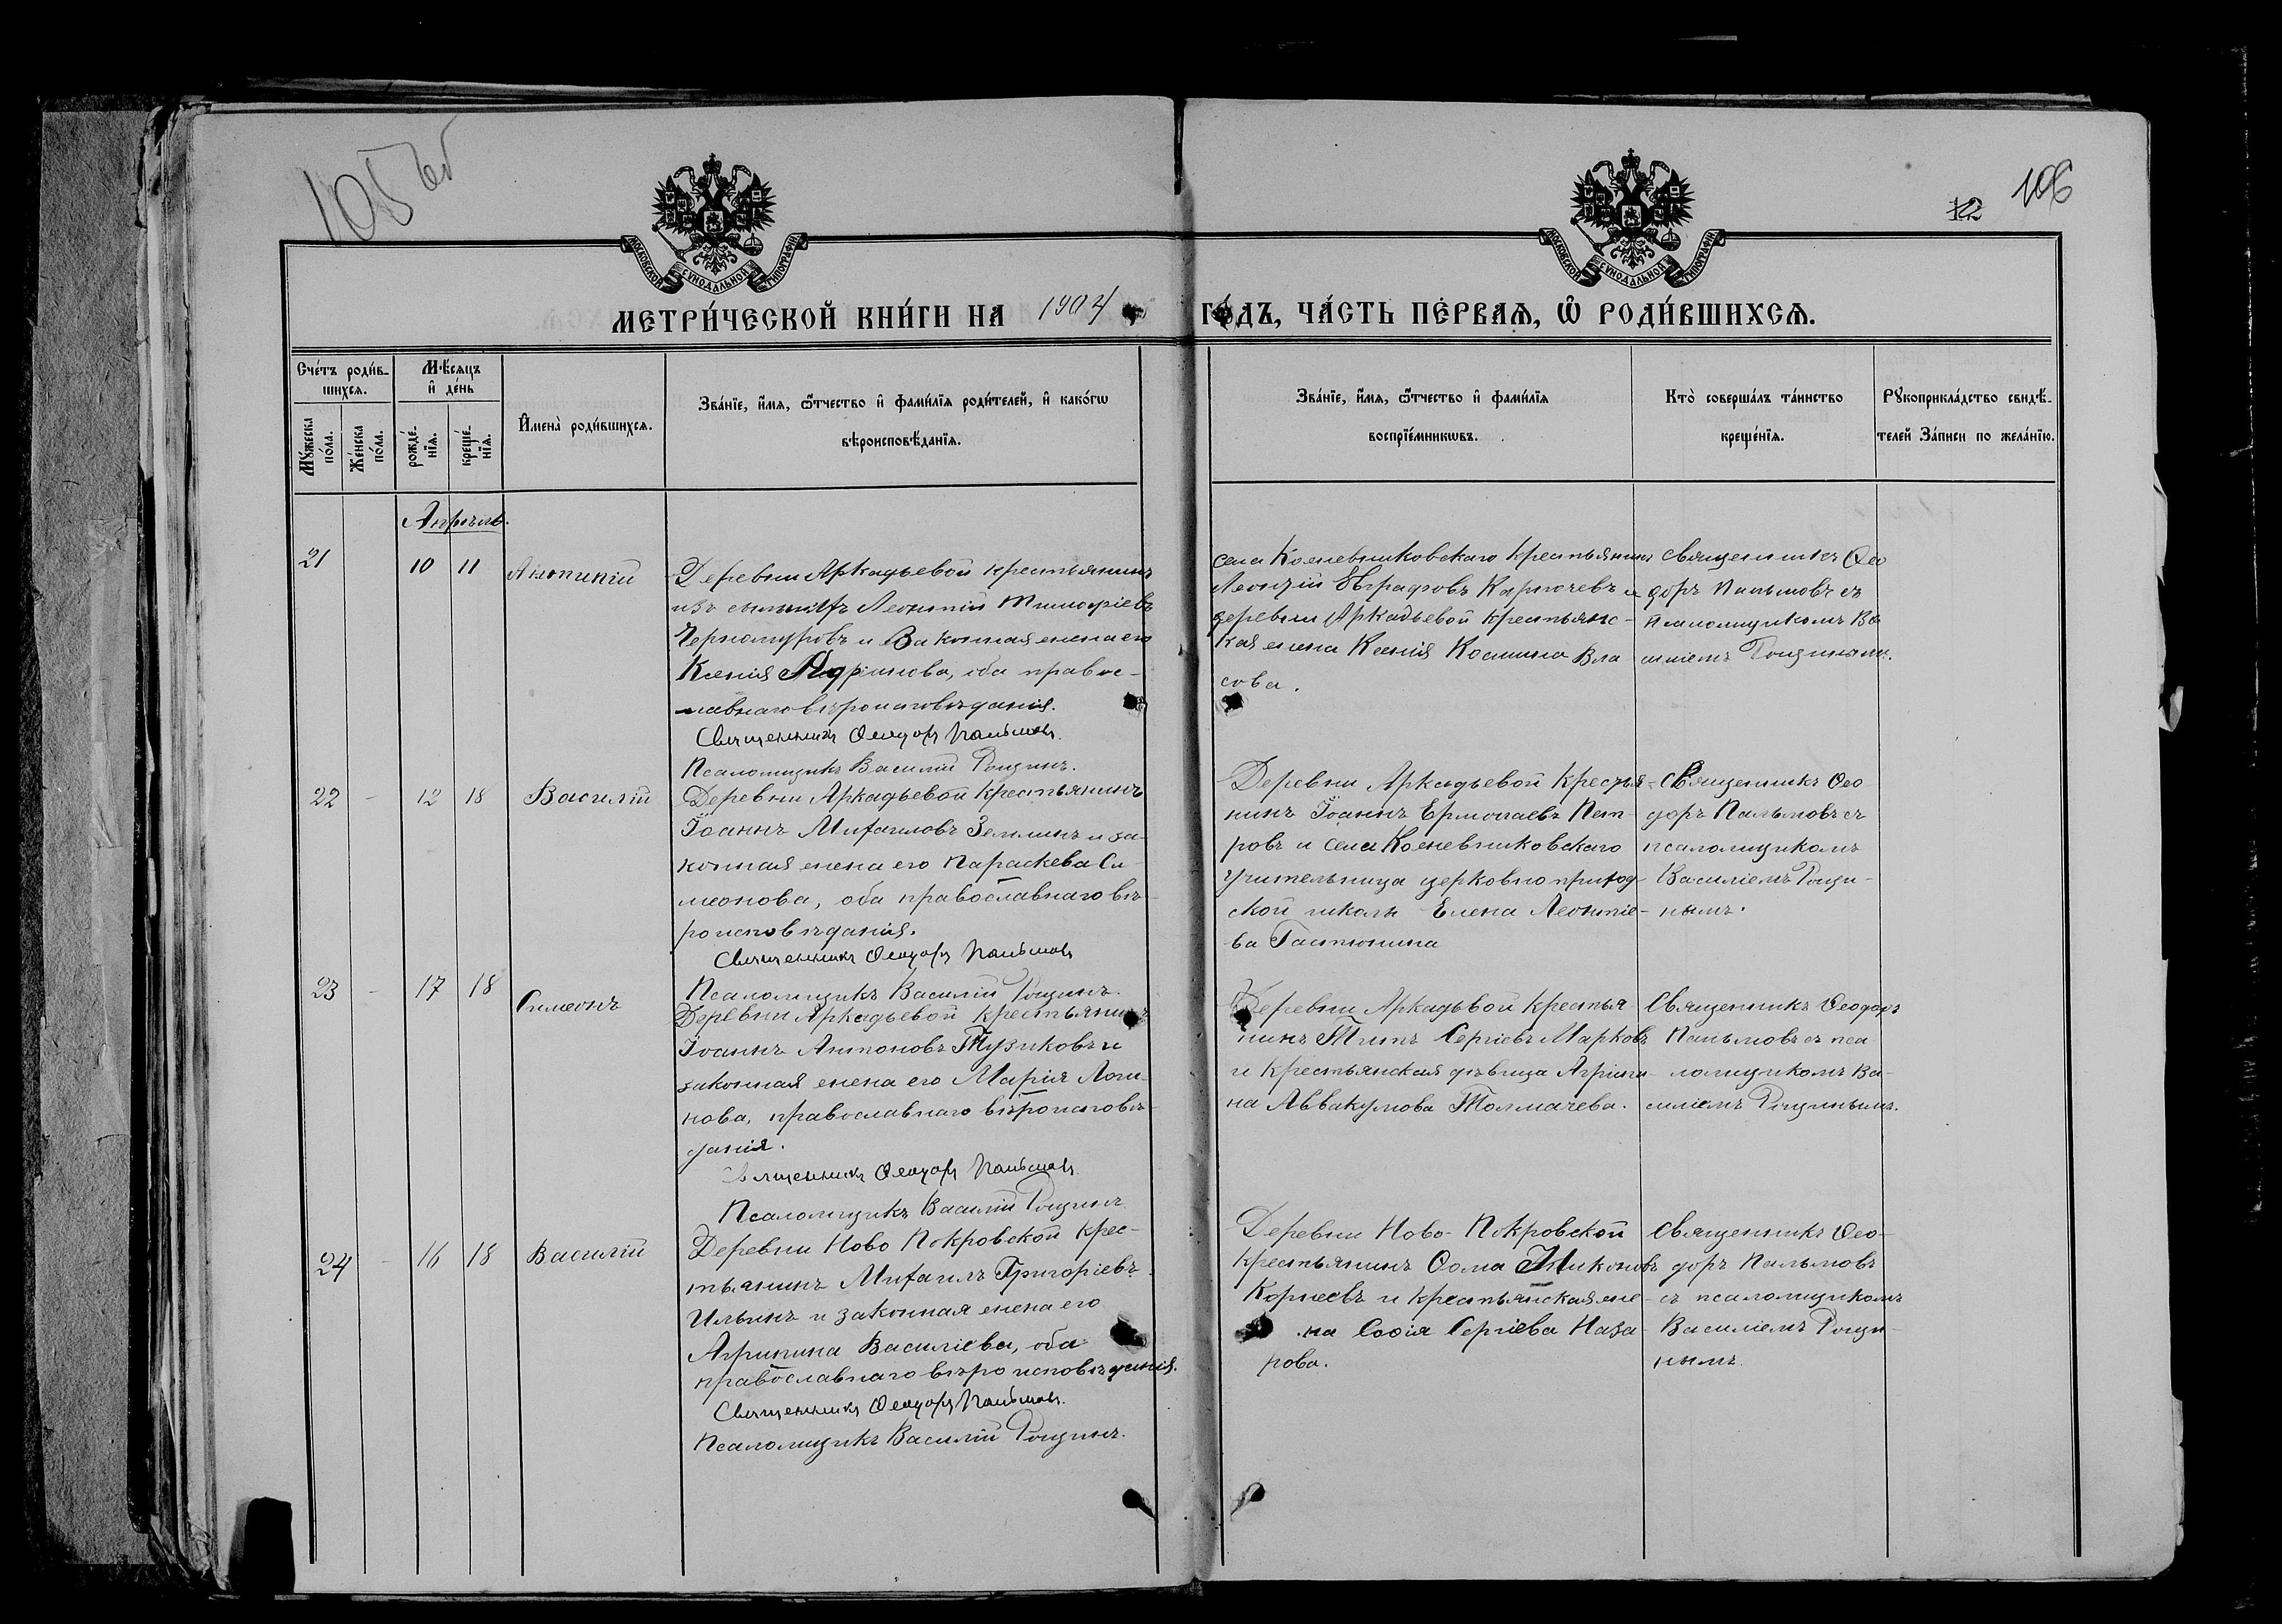 105 об
12 106
МОСКОВСКОЙ СѴНОДАЛЬНОЙ ТИПОГРАФІИ
МОСКОВСКОЙ СѴНОДАЛЬНОЙ ТИПОГРАФІИ
МЕТРИ́ЧЕСКОЙ КНИ́ГИ НА 1904 ГО́ДЪ, ЧА́СТЬ ПЕ́РВАѦ, Ѡ҆ РОДИ́ВШИХСѦ.
Сче́тъ роди́в-
шихсѧ.
Мꙋ́жеска
по́ла.
Же́нска
по́ла.
Мѣ́сѧцъ
и҆ де́нь
рожде́-
нїѧ.
креще́-
нїѧ.
И҆мена̀ роди́вшихсѧ.
Зва́нїе, и҆́мѧ, ѻ҆́тчество и҆ фами́лїѧ роди́телей, и҆ како́гѡ
вѣроисповѣ́данїѧ.
Зва́нїе, и҆́мѧ, ѻ҆́тчество и҆ фами́лїѧ
воспрїе́мникѡвъ.
Кто̀ соверша́лъ та́инство
креще́нїѧ.
Рꙋкоприкла́дство свидѣ́-
телей За́писи по жела́нїю.
Апрѣль.
21 10 11 Антипій
Деревни Аркадьевой крестьянинъ
изъ Леонтій Тимофіевъ
Черномуровъ и Законная жена его
Ксенія Адріанова, оба правос-
лавнаго вѣроисповѣданія.
Священникъ Ѳеодоръ Пальмовъ.
Псаломщикъ Василій Рощинъ.
села Кожевниковскаго крестьянинъ
Леонтій Евграфовъ Карпачевъ и
деревни Аркадьевой крестьянс-
кая жена Ксенія Космина Вла
сова.
Священникъ Ѳео
доръ Пальмовъ съ
псаломщикомъ Ва
силіемъ Рощинымъ.
22 - 12 18 Василій
Деревни Аркадьевой крестьянинъ
Іоаннъ Михаиловъ Землинъ и за-
конная жена его Параскева Си-
меонова, оба православнаго вѣ-
роисповѣданія.
Священникъ Ѳеодоръ Пальмовъ
Псаломщикъ Василій Рощинъ.
Деревни Аркадьевой Крестья-
нинъ Іоаннъ Ермолаевъ Пет-
ровъ и села Кожевниковскаго
учительница церковно приход-
ской школы Елена Леонтіе-
ва Гастюнина
Священникъ Ѳео
доръ Пальмовъ съ
псаломщикомъ
Василіемъ Рощи-
нымъ.
23 - 17 18 Симеонъ
Деревни Аркадьевой крестьянинъ
Іоаннъ Антоновъ Тузиковъ и
законная жена его Марія Логи-
нова, православнаго вѣроисповѣ-
данія.
Священникъ Ѳеодоръ Пальмовъ
Псаломщикъ Василій Рощинъ
Деревни Аркадьвой крестья
нинъ Титъ Сергіевъ Марковъ
и крестьянская дѣвица Агрипи-
на Аввакумова Толмачева.
Священникъ Ѳеодоръ
Пальмовъ съ пса-
ломщикомъ Ва-
силіемъ Рощинымъ.
24 - 16 18 Василій
Деревни Ново Покровской крес-
тьянинъ Михаилъ Григоріевъ
Ильинъ и законная жена его
Агрипина Василіева, оба
православнаго вѣроисповѣданія.
Священникъ Ѳеодоръ Пальмовъ.
Псаломщикъ Василій Рощинъ.
Деревни Ново-Покровской
крестьянинъ Ѳома
Корнеевъ и крестьянская же-
на Софія Сергіева Наза-
рова.
Священникъ Ѳео-
доръ Пальмовъ
съ псаломщикомъ
Василіемъ Рощи-
нымъ.